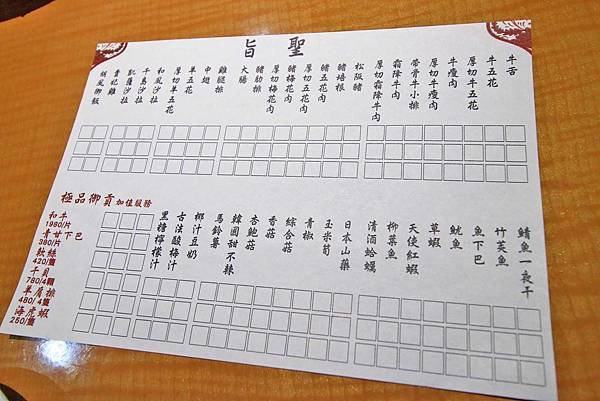 聖旨
牛舌
牛五花
牛瘦肉
厚切牛五花
厚切牛瘦肉
帶骨牛小排
霜降牛肉
厚切霜降牛肉
松阪豬
豬培根
豬五花肉
厚切五花肉
豬梅花肉
厚切梅花肉
豬肋排
大腸
雞腿排
中翅
羊五花
厚切羊五花
和風沙拉
千島沙拉
凱薩沙拉
貴妃雞
御飯
鯖魚一夜干
竹莢魚
魚下巴
魷魚
草蝦
天使紅蝦
柳葉魚
清酒蛤蠣
日本山藥
玉米筍
青椒
綜合菇
香菇
杏鮑菇
韓國甜不辣
馬鈴薯
椰汁豆奶
古法酸梅汁
黑糖檸檬汁
極品御貢加值服務
和牛
1980/片
青甘下巴
380/片
軟絲
420/盤
干貝
780/4顆
羊肩排
480/4盤
海虎蝦
250/盤